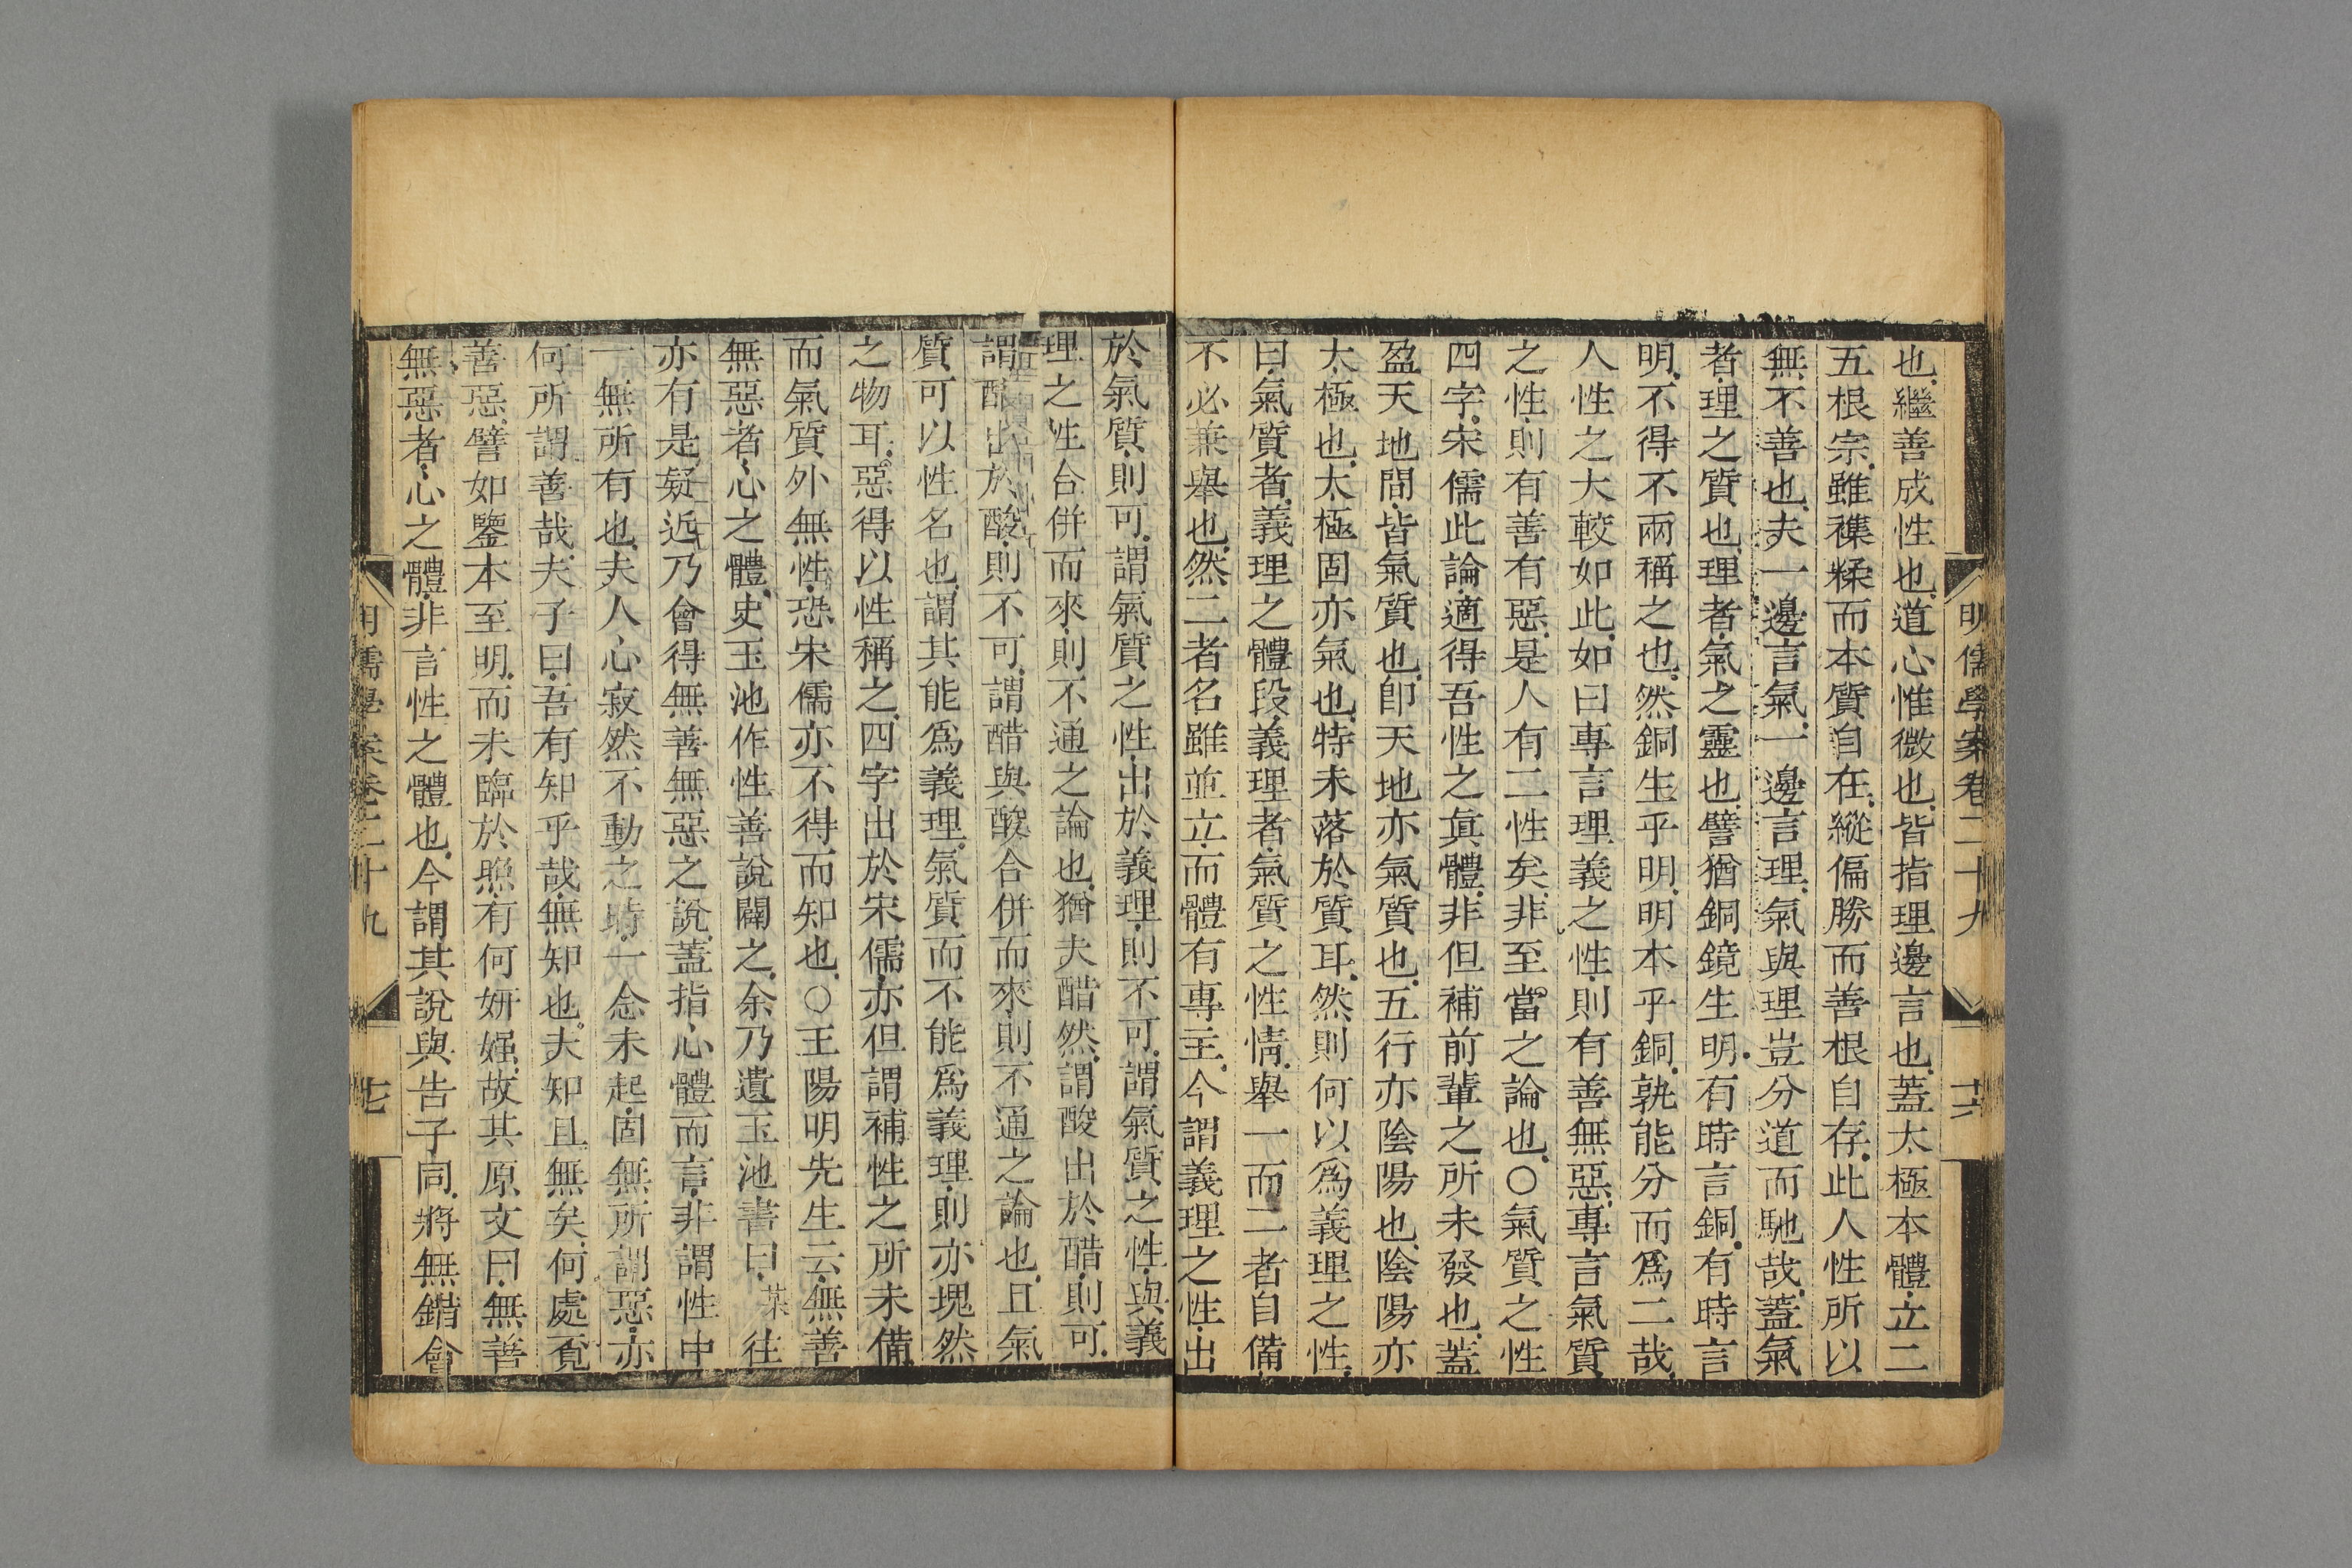 明儒學案卷二十九
十六
也繼善成性也道心惟微也皆指理邊言也蓋太極本體立二
五根宗雖襍糅而本質自在縱偏勝而善根自存此人性所以
無不善也夫一邊言氣一邊言理氣與理豈分道而馳哉蓋氣
者理之質也理者氣之靈也譬猶銅鏡生明有時言銅有時言
明不得不兩稱之也然銅生乎明明本乎銅孰能分而爲二哉
人性之大較如此如曰專言理義之性則有善無惡專言氣質
之性則有善有惡是人有二性矣非至當之論也○氣質之性
四字宋儒此論適得吾性之眞體非但補前輩之所未發也蓋
盈天地間皆氣質也卽天地亦氣質也五行亦陰陽也陰陽亦
太極也太極固亦氣也特未落於質耳然則何以爲義理之性
曰氣質者義理之體段義理者氣質之性情舉一而二者自備
不必兼舉也然二者名雖並立而體有專主今謂義理之性出
於氣質則可謂氣質之性出於義理則不可謂氣質之性與義
理之性合併而來則不通之論也猶夫醋然謂酸出於醋則可
謂醋出於酸則不可謂醋與酸合併而來則不通之論也且氣
質可以性名也謂其能爲義理氣質而不能爲義理則亦塊然
之物耳惡得以性稱之四字出於宋儒亦但謂補性之所未備
而氣質外無性恐宋儒亦不得而知也○王陽明先生云無善
無惡者心之體史玉池作性善說闢之余乃遺玉池書曰某往
亦有是疑近乃會得無善無惡之說蓋指心體而言非謂性中
一無所有也夫人心寂然不動之時一念未起固無所謂惡亦
何所謂善哉夫子曰吾有知乎哉無知也夫知且無矣何處覔
善惡譬如鑒本至明而未臨於照有何妍媸故其原文曰無善
無惡者心之體非言性之體也今謂其說與告子同將無錯會
明儒學案卷二十九
十七